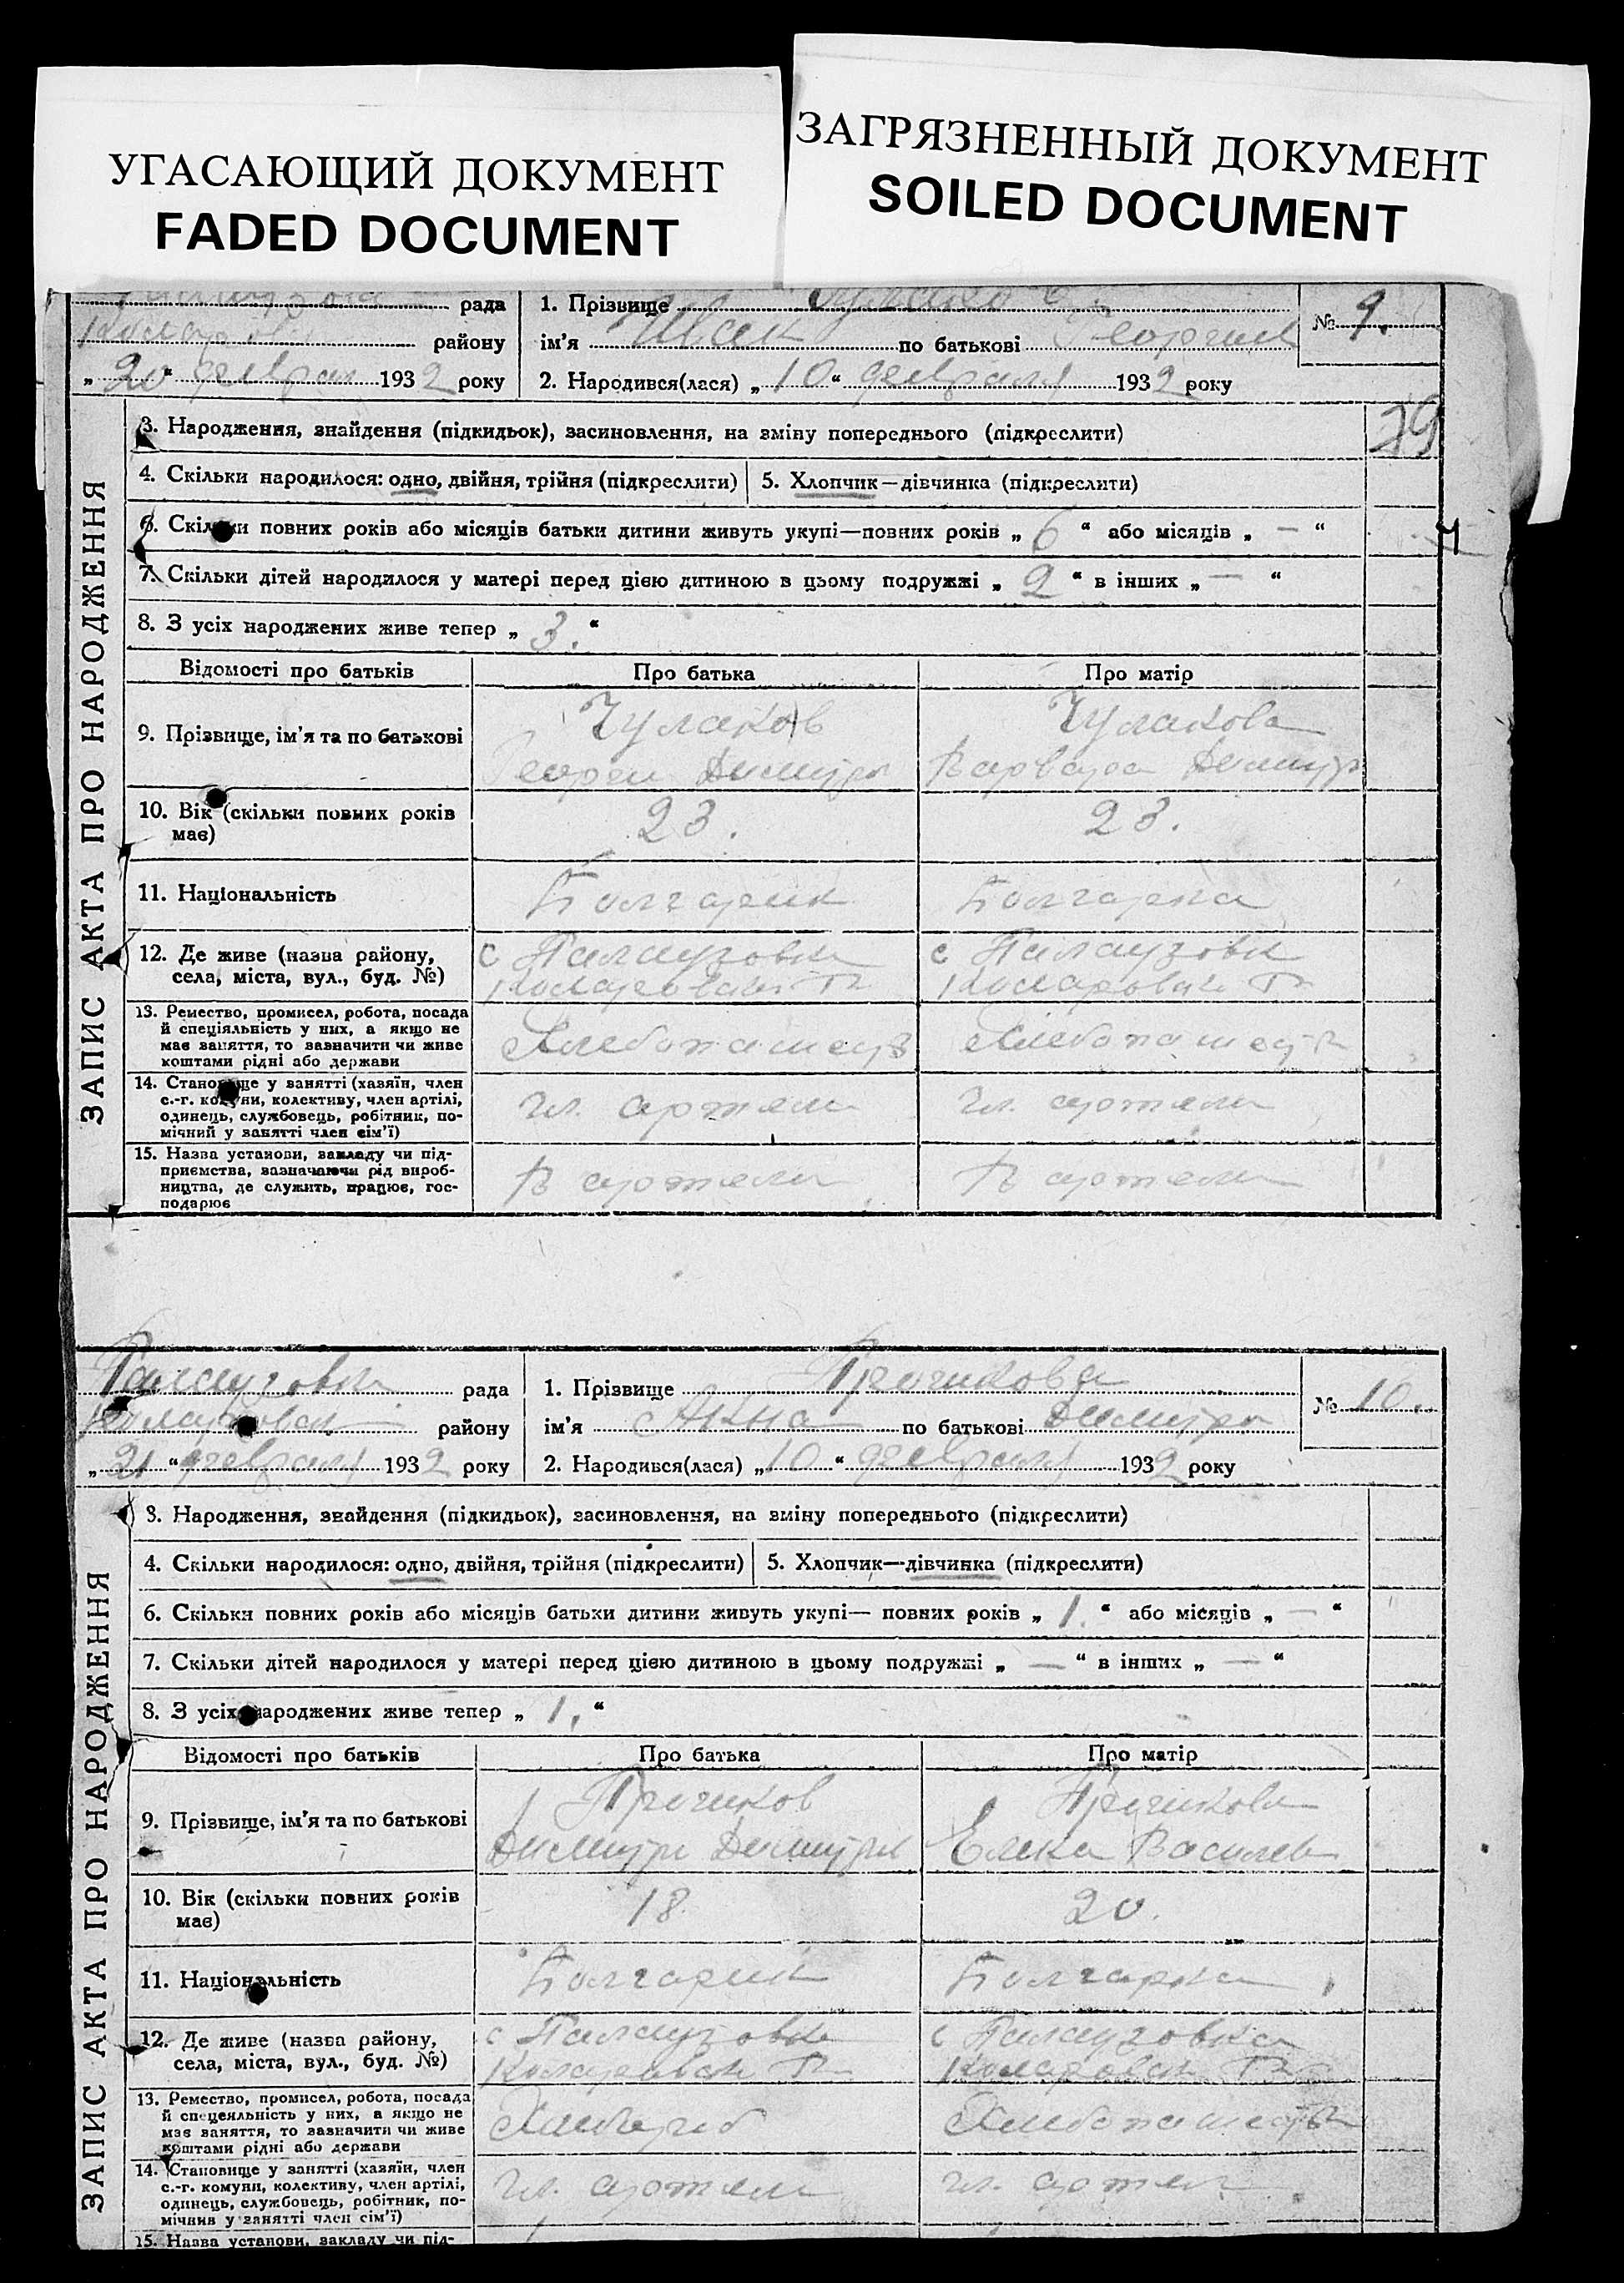 УГАСАЮЩИЙ ДОКУМЕНТ
FADED DOCUMENT
ЗАГРЯЗНЕННЫЙ ДОКУМЕНТ
SOILED DOCUMENT
рада
району
„ 20 “ февраля 1932 року
1. Прізвище
ім'я Иван по батькові Георгиев
2. Народився(лася) „ 10 “ февраля 1932 року
№ 9.
79
ЗАПИС АКТА ПРО НАРОДЖЕННЯ
3. Народження, знайдення (підкидьок), засиновлення, на зміну попереднього (підкреслити)
4. Скільки народилося: одно, двійня, трійня (підкреслити)
5. Хлопчик—дівчинка (підкреслити)
6. Скільки повних років або місяців батьки дитини живуть укупі—повних років „ 6 “ або місяців „ — “
7. Скільки дітей народилося у матері перед цією дитиною в цьому подружжі „ 2 “ в інших „ — “
8. З усіх народжених живе тепер „ 3. “
Відомості про батьків
Про батька
Про матір
9. Прізвище, ім'я та по батькові
Чулаков
Георги Димитри
Чулакова
Варвара Димитр
10. Вік (скільки повних років
має)
23.
23.
11. Національність
Болгарин
Болгарка
12. Де живе (назва району,
села, міста, вул., буд. №)
с Палаузовка
Коларовски Р
с Палаузовка
Коларовски Р
13. Ремество, промисел, робота, посада
й спеціяльність у них, а якщо не
має заняття, то зазначити чи живе
коштами рідні або держави
Хлебопашец
Хлебопашец
14. Становище у занятті (хазяїн, член
с.-г. комуни, колективу, член артілі,
одинець, службовець, робітник, по-
мічний у занятті член сім'ї)
чл. артели
чл. артели
15. Назва установи, закладу чи під-
приємства, зазначаючи рід вироб-
ництва, де служить, працює, гос-
подарює
В артели
В артели
Палаузовка рада
Коларовски району
„ 21 “ февраля 1932 року
1. Прізвище
ім'я Анна по батькові Димитри
2. Народився(лася) „ 10 “ февраля 1932 року
№ 10.
ЗАПИС АКТА ПРО НАРОДЖЕННЯ
3. Народження, знайдення (підкидьок), засиновлення, на зміну попереднього (підкреслити)
4. Скільки народилося: одно, двійня, трійня (підкреслити)
5. Хлопчик—дівчинка (підкреслити)
6. Скільки повних років або місяців батьки дитини живуть укупі— повних років „ 1. “ або місяців „ — “
7. Скільки дітей народилося у матері перед цією дитиною в цьому подружжі „ — “ в інших „ — “
8. З усіх народжених живе тепер „ 1, “
Відомості про батьків
Про батька
Про матір
9. Прізвище, ім'я та по батькові
Димитри Димитри
Елена Василев
10. Вік (скільки повних років
має)
18
20.
11. Національність
Болгарин
Болгарка
12. Де живе (назва району,
села, міста, вул., буд. №)
с Палаузовка
Коларовски Р
с Палаузовка
Коларовски Р
13. Ремество, промисел, робота, посада
й спецеяльність у них, а якщо не
має заняття, то зазначити чи живе
коштами рідні або держави
Хлебопашец
14. Становище у занятті (хазяїн, член
с.-г. комуни, колективу, член артілі,
одинець, службовець, робітник, по-
мічнив у занятті член сім'ї)
чл. артели
чл. артели
15. Назва установи, закладу чи під-